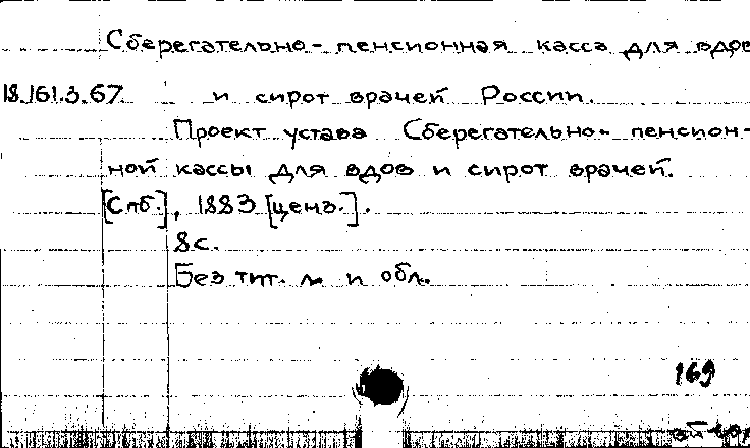 Сберегательно-пенсионная касса для вдов
18.161.3.67 и сирот врачей России.
Проект устава Сберегательно-пенсион-
ной кассы для вдов и сирот врачей.
[Спб.], 1883 [ценз.].
8с.
Без тит. л. и обл.
169